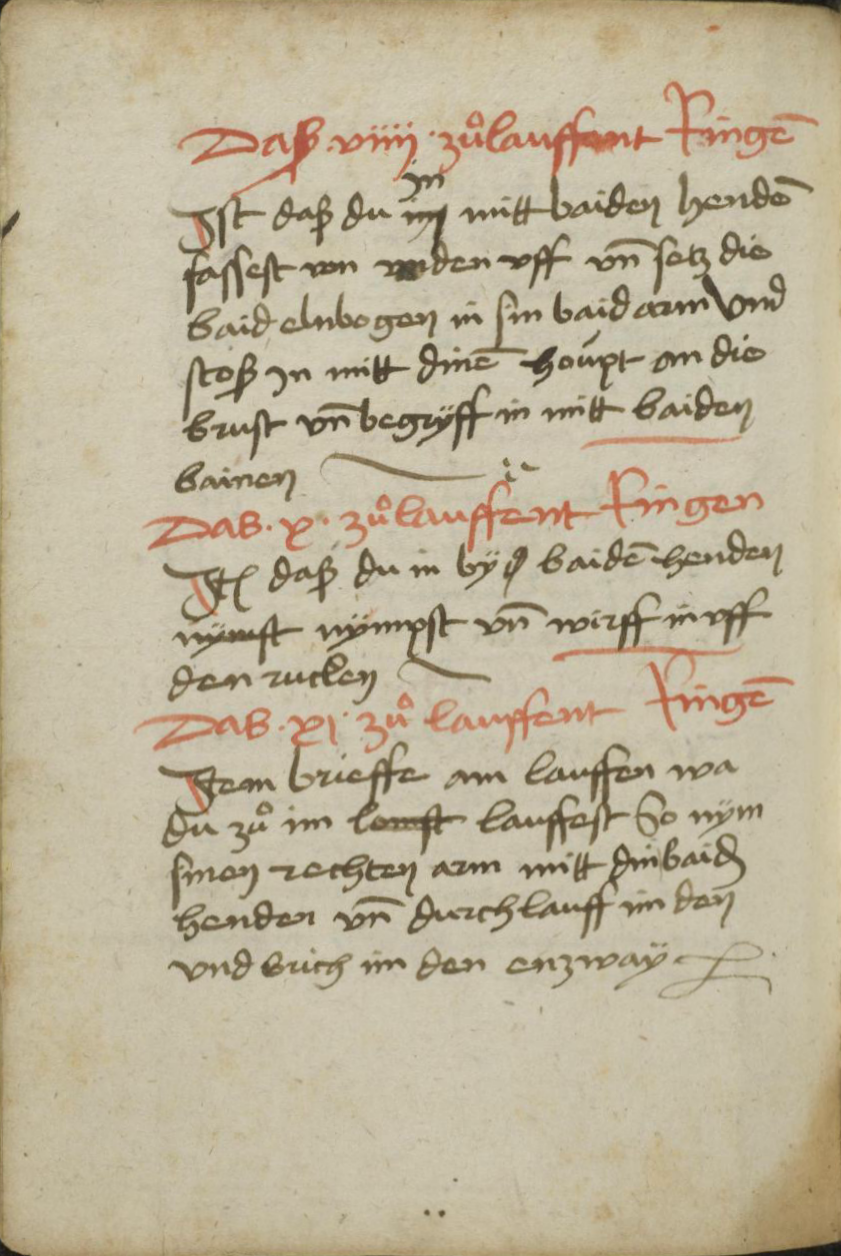 Daß · viiii · zuͦlauffent Ringē
Ist daß du in mitt baiden hendē
fassest von vnden vff vn̄ setz die
baid elnbogen in sin baid arm Vnd
stoß In mitt dinē houpt an die
brust vn̄ begryff in mitt baiden
bainen
Das · x · zuͦlauffent Ringen
Itē daß du in by baidē henden
nymst nÿmpst vn̄ wirff in vff
den rucken
Das · xi · zuͦ lauffent Ringē
Item brieffe am lauffen wa
du zuͦ im lauffest So nÿm
sinen rechten arm mitt din baidē
henden vn̄ durchlauff im den
vnd brich im den enzwaÿ